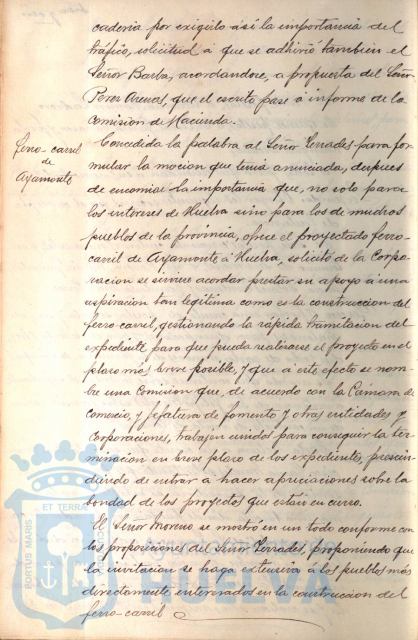 cadería por exigirlo así la importancia del
tráfico, solicitud á que se adhirió también el
Señor Barba, acordandose, a propuesta del Señor
Perez Arenas, que el escrito pase á informe de la
Comision de Hacienda.
ferro-carril
de
Ayamonte
Concedida la palabra al Señor Terrades para for-
mular la mocion que tenia anunciada, despues
de encomiar la importancia que, no solo para
los intereses de Huelva sino para los de muchos
pueblos de la provincia, ofrece el proyectado ferro-
carril de Ayamonte á Huelva, solicitó de la Corpo-
racion se sirviere acordar prestar su apoyo á una
aspiracion tan legítima como es la construccion del
ferro-carril, gestionando la rápida tramitacion del
expediente para que pueda realizarse el proyecto en el
plazo más breve posible, y que á este efecto se nom-
bre una Comision que, de acuerdo con la Cámara de
Comercio, y Jefatura de fomento y otras entidades y
Corporaciones, trabajen unidos para conseguir la ter-
minacion en breve plazo de los expediente, prescin-
diendo de entrar a hacer apreciaciones sobre la
bondad de los proyectos que están en curso.
El Señor Moreno se mostró en un todo conforme con
las proposiciones del Señor Terrades, proponiendo que
la invitacion se haga extensiva á los pueblos más
directamente interesados en la construccion del
ferro-carril
PORTUS MARIS
ET TERRAE
HUELVA